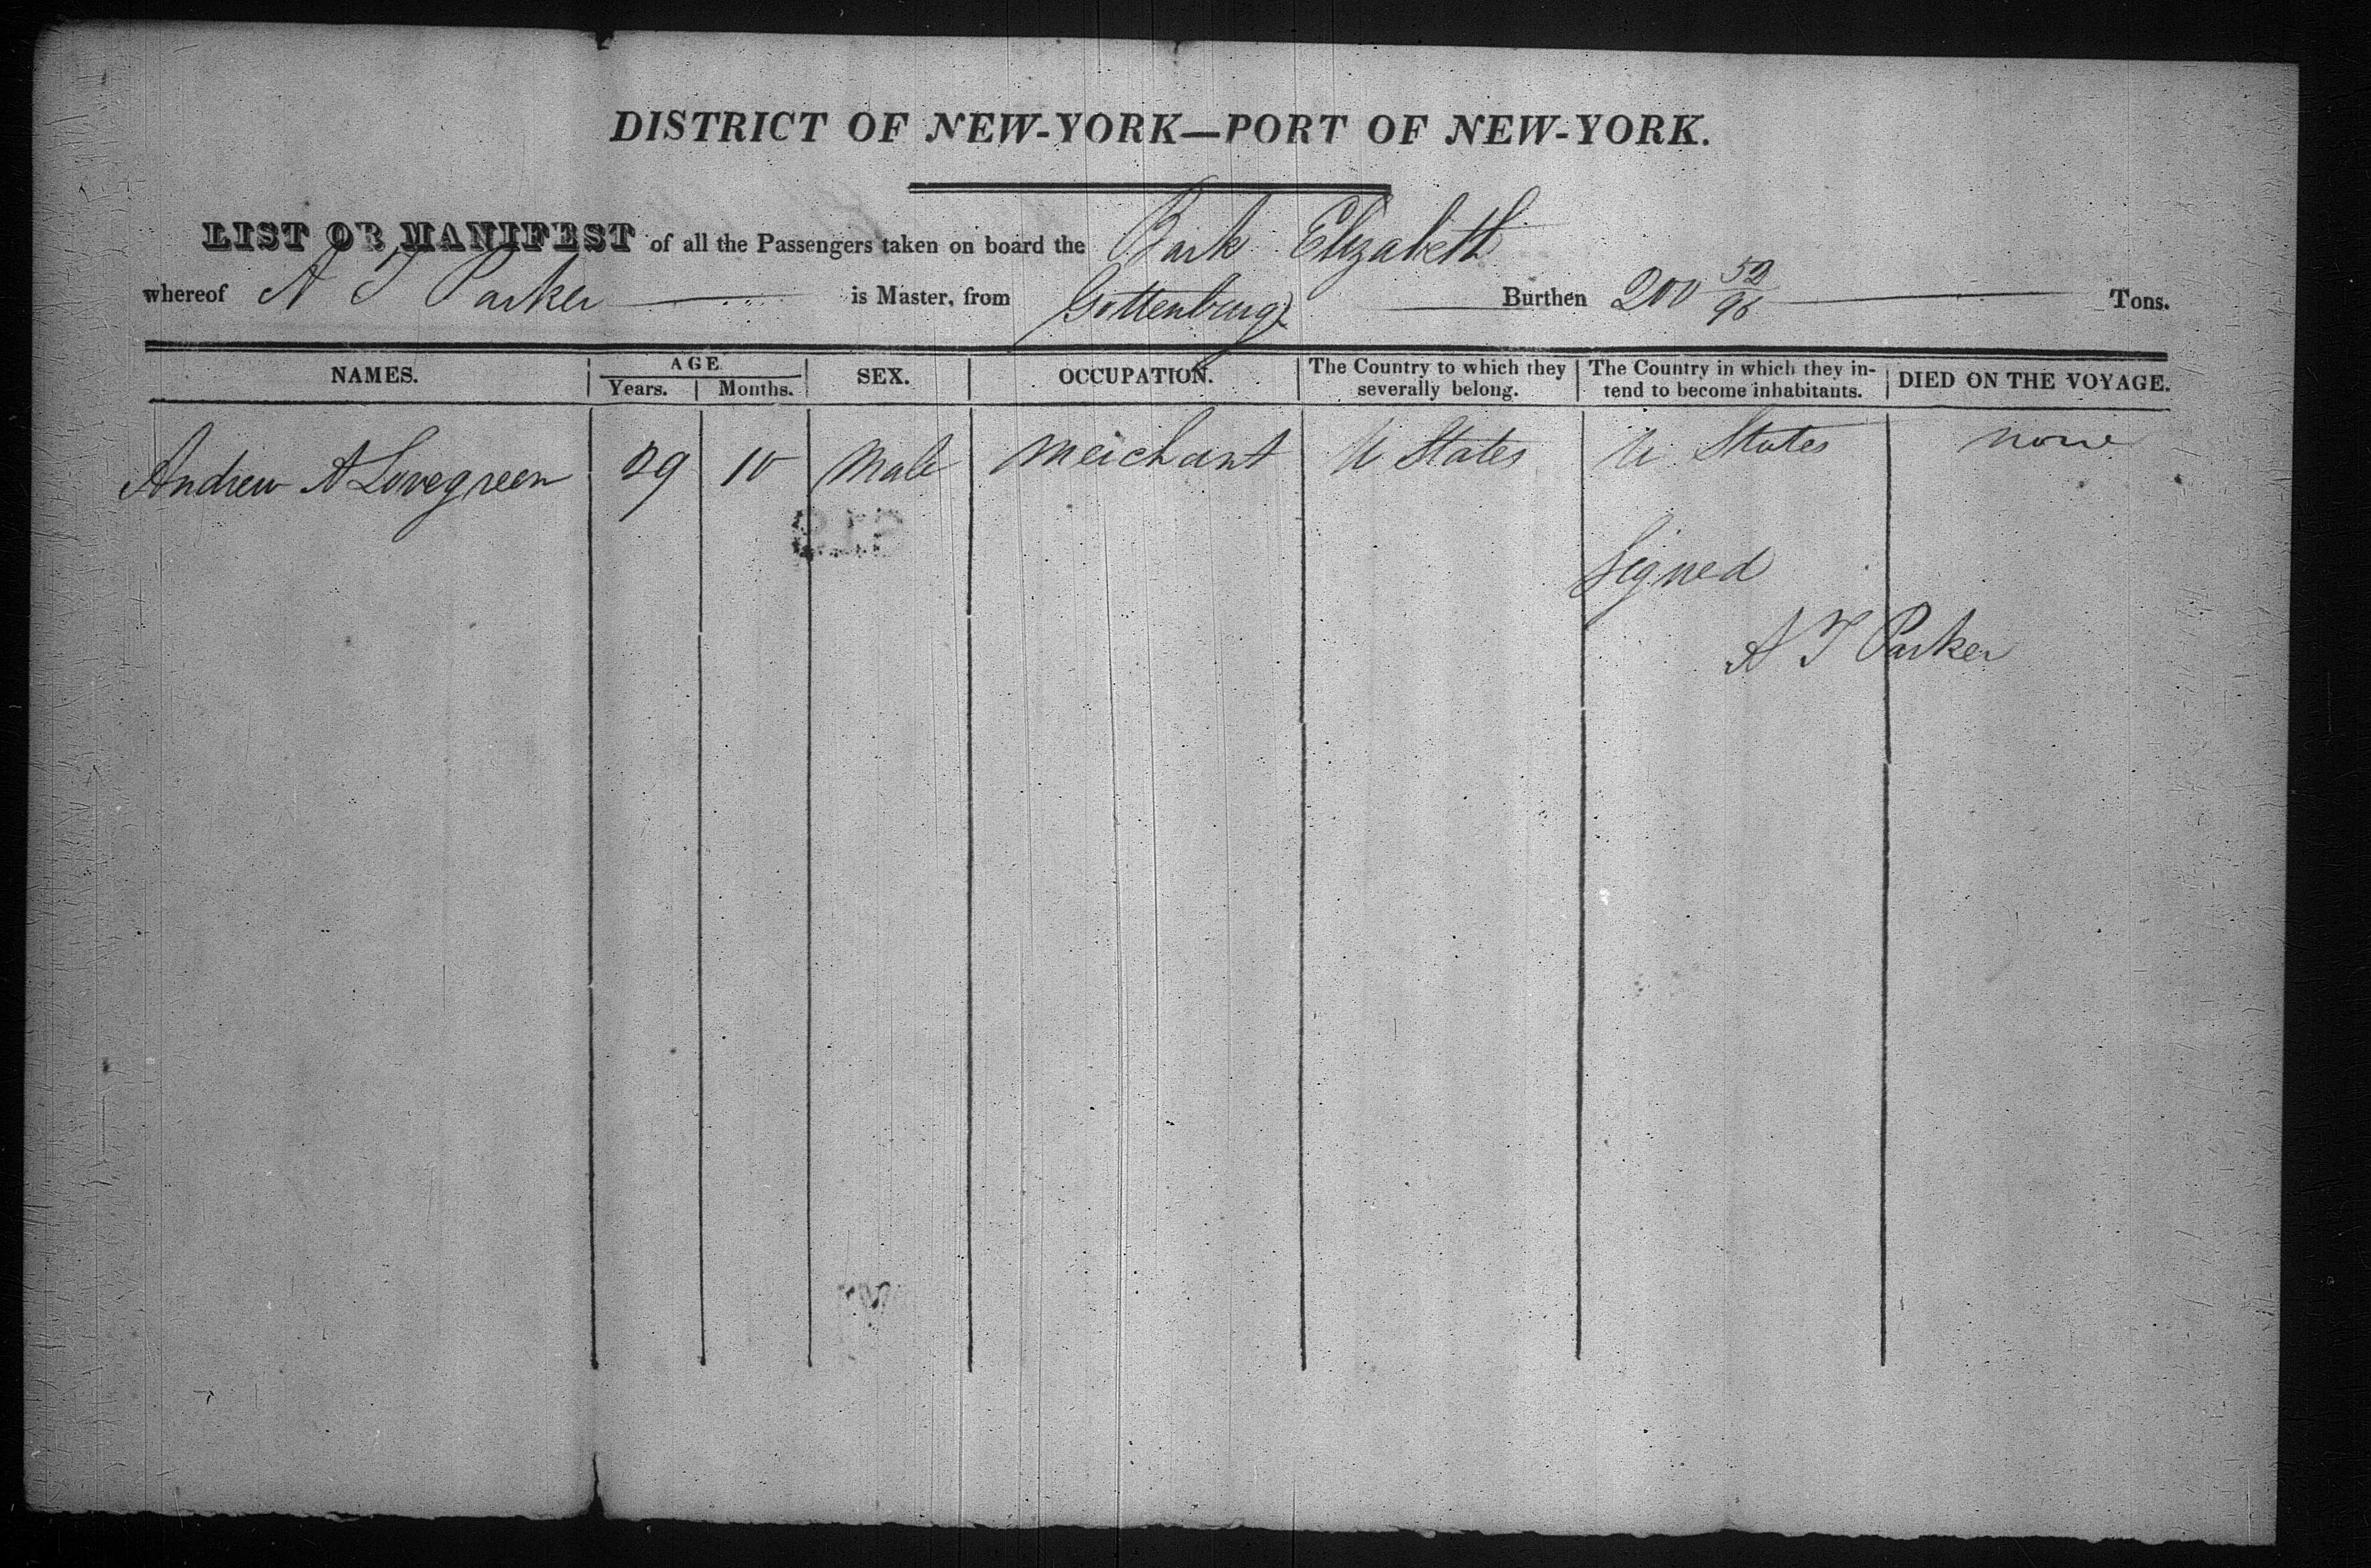 DISTRICT OF NEW-YORK—PORT OF NEW-YORK.
LIST OR MANIFEST of all the Passengers taken on board the Bark Elizabeth
whereof A T Parker is Master, from Gottenburg Burthen 200 52/95 Tons.
NAMES. AGE Years. Months. SEX. OCCUPATION. The Country to which they severally belong. The Country in which they intend to become inhabitants. DIED ON THE VOYAGE.
Andrew A Lovegreen 29 10 Male merchant U States U States none
Signed
A T Parker